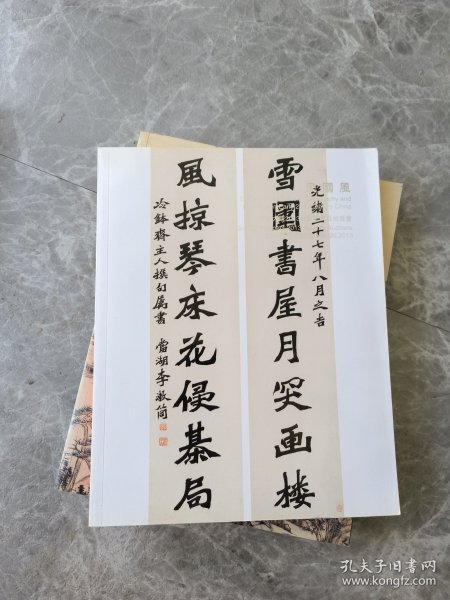 光緒二十七年八月之吉
雪圍書屋月窥画楼
風掠琴床花侵棊局
冷鉢齋主人撰句屬書
當湖李敬簡
國風
孔夫子旧书网
www.kongfz.com